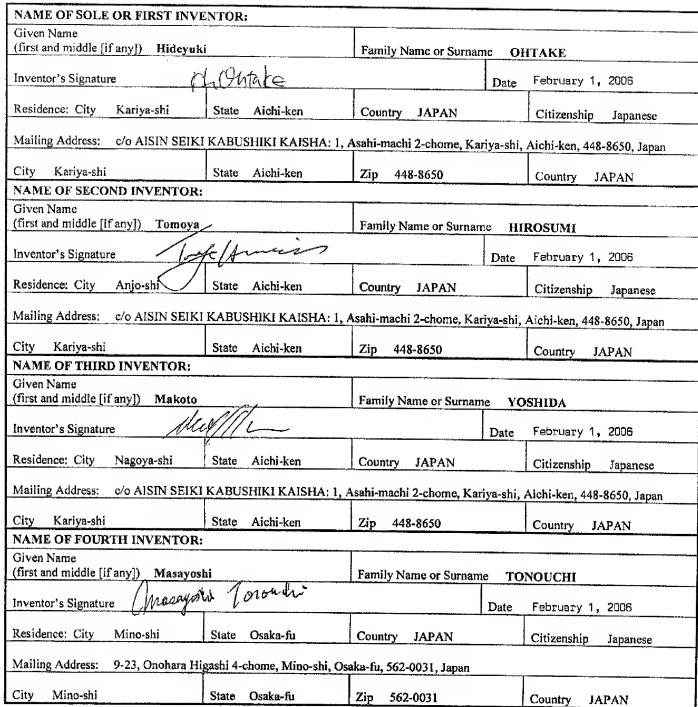 NAME OF SOLE OR FIRST INVENTOR:
Given Name
(first and middle [if any]) Hideyuki Family Name or Surname OHTAKE
Inventor's Signature H. Ohtake Date February 1, 2006
Residence: City Kariya-shi State Aichi-ken Country JAPAN Citizenship Japanese
Mailing Address: c/o AISIN SEIKI KABUSHIKI KAISHA: 1, Asahi-machi 2-chome, Kariya-shi, Aichi-ken, 448-8650, Japan
City Kariya-shi State Aichi-ken Zip 448-8650 Country JAPAN
NAME OF SECOND INVENTOR:
Given Name
(first and middle [if any]) Tomoya Family Name or Surname HIROSUMI
Inventor's Signature Date February 1, 2006
Residence: City Anjo-shi State Aichi-ken Country JAPAN Citizenship Japanese
Mailing Address: c/o AISIN SEIKI KABUSHIKI KAISHA: 1, Asahi-machi 2-chome, Kariya-shi, Aichi-ken, 448-8650, Japan
City Kariya-shi State Aichi-ken Zip 448-8650 Country JAPAN
NAME OF THIRD INVENTOR:
Given Name
(first and middle [if any]) Makoto Family Name or Surname YOSHIDA
Inventor's Signature Date February 1, 2006
Residence: City Nagoya-shi State Aichi-ken Country JAPAN Citizenship Japanese
Mailing Address: c/o AISIN SEIKI KABUSHIKI KAISHA: 1, Asahi-machi 2-chome, Kariya-shi, Aichi-ken, 448-8650, Japan
City Kariya-shi State Aichi-ken Zip 448-8650 Country JAPAN
NAME OF FOURTH INVENTOR:
Given Name
(first and middle [if any]) Masayoshi Family Name or Surname TONOUCHI
Inventor's Signature Masayoshi Tonouchi Date February 1, 2006
Residence: City Mino-shi State Osaka-fu Country JAPAN Citizenship Japanese
Mailing Address: 9-23, Onohara Higashi 4-chome, Mino-shi, Osaka-fu, 562-0031, Japan
City Mino-shi State Osaka-fu Zip 562-0031 Country JAPAN